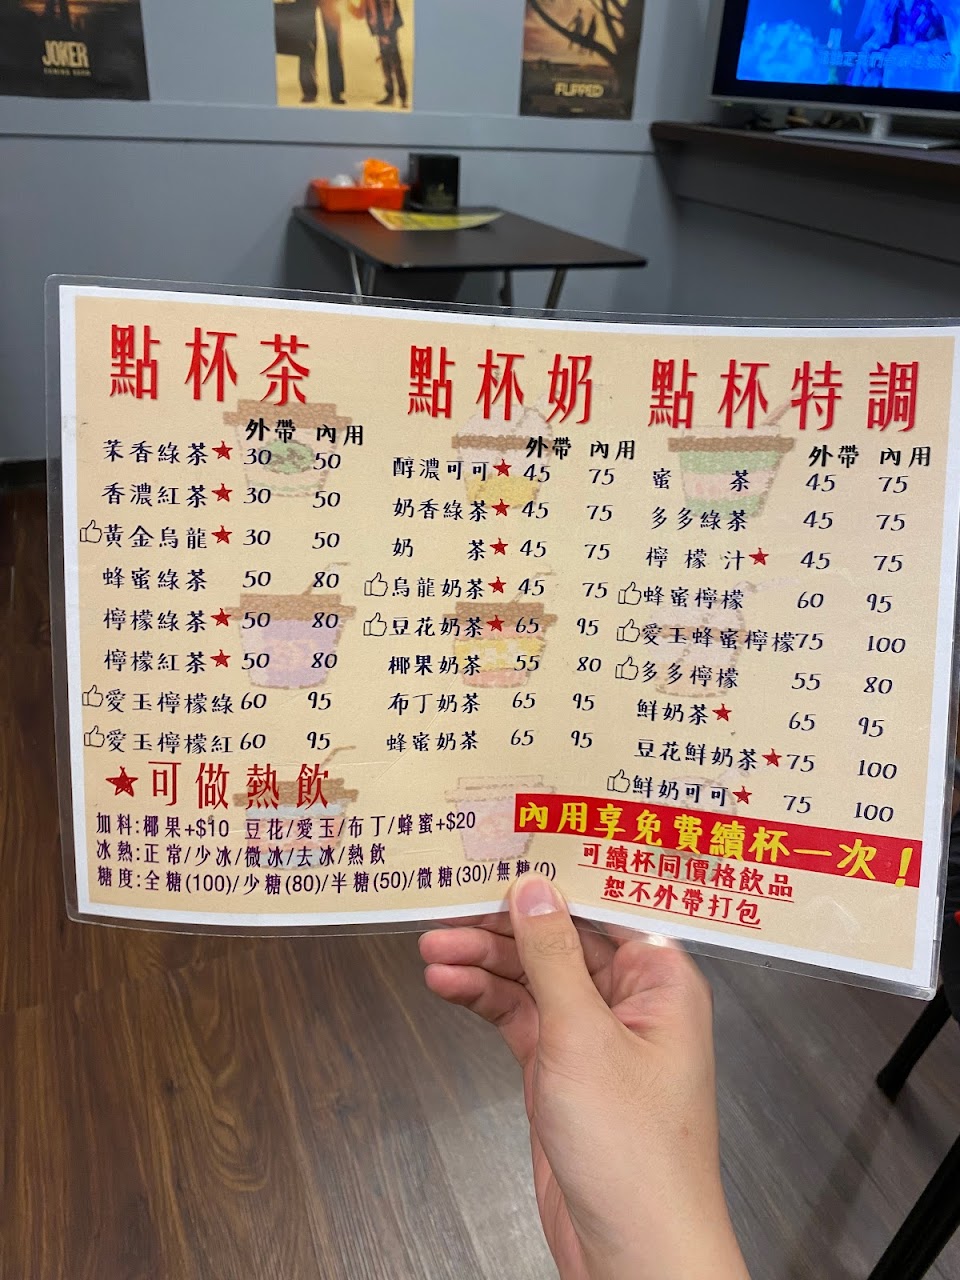 JOKER
COMING SOON
FLIPPED
點杯茶
外帶 內用
茉香綠茶★ 30 50
香濃紅茶★ 30 50
黃金烏龍★ 30 50
蜂蜜綠茶 50 80
檸檬綠茶★ 50 80
檸檬紅茶★ 50 80
愛玉檸檬綠 60 95
愛玉檸檬紅 60 95
★可做熱飲
加料:椰果+$10 豆花/愛玉/布丁/蜂蜜+$20
冰熱:正常/少冰/微冰/去冰/熱飲
糖度:全糖(100)/少糖(80)/半糖(50)/微糖(30)/無糖(0)
點杯奶
外帶 內用
醇濃可可★ 45 75
奶香綠茶★ 45 75
奶茶★ 45 75
烏龍奶茶★ 45 75
豆花奶茶★ 65 95
椰果奶茶 55 80
布丁奶茶 65 95
蜂蜜奶茶 65 95
點杯特調
外帶 內用
蜜茶 45 75
多多綠茶 45 75
檸檬汁★ 45 75
蜂蜜檸檬 60 95
愛玉蜂蜜檸檬 75 100
多多檸檬 55 80
鮮奶茶★ 65 95
豆花鮮奶茶★ 75 100
鮮奶可可★ 75 100
內用享免費續杯一次！
可續杯同價格飲品
恕不外帶打包